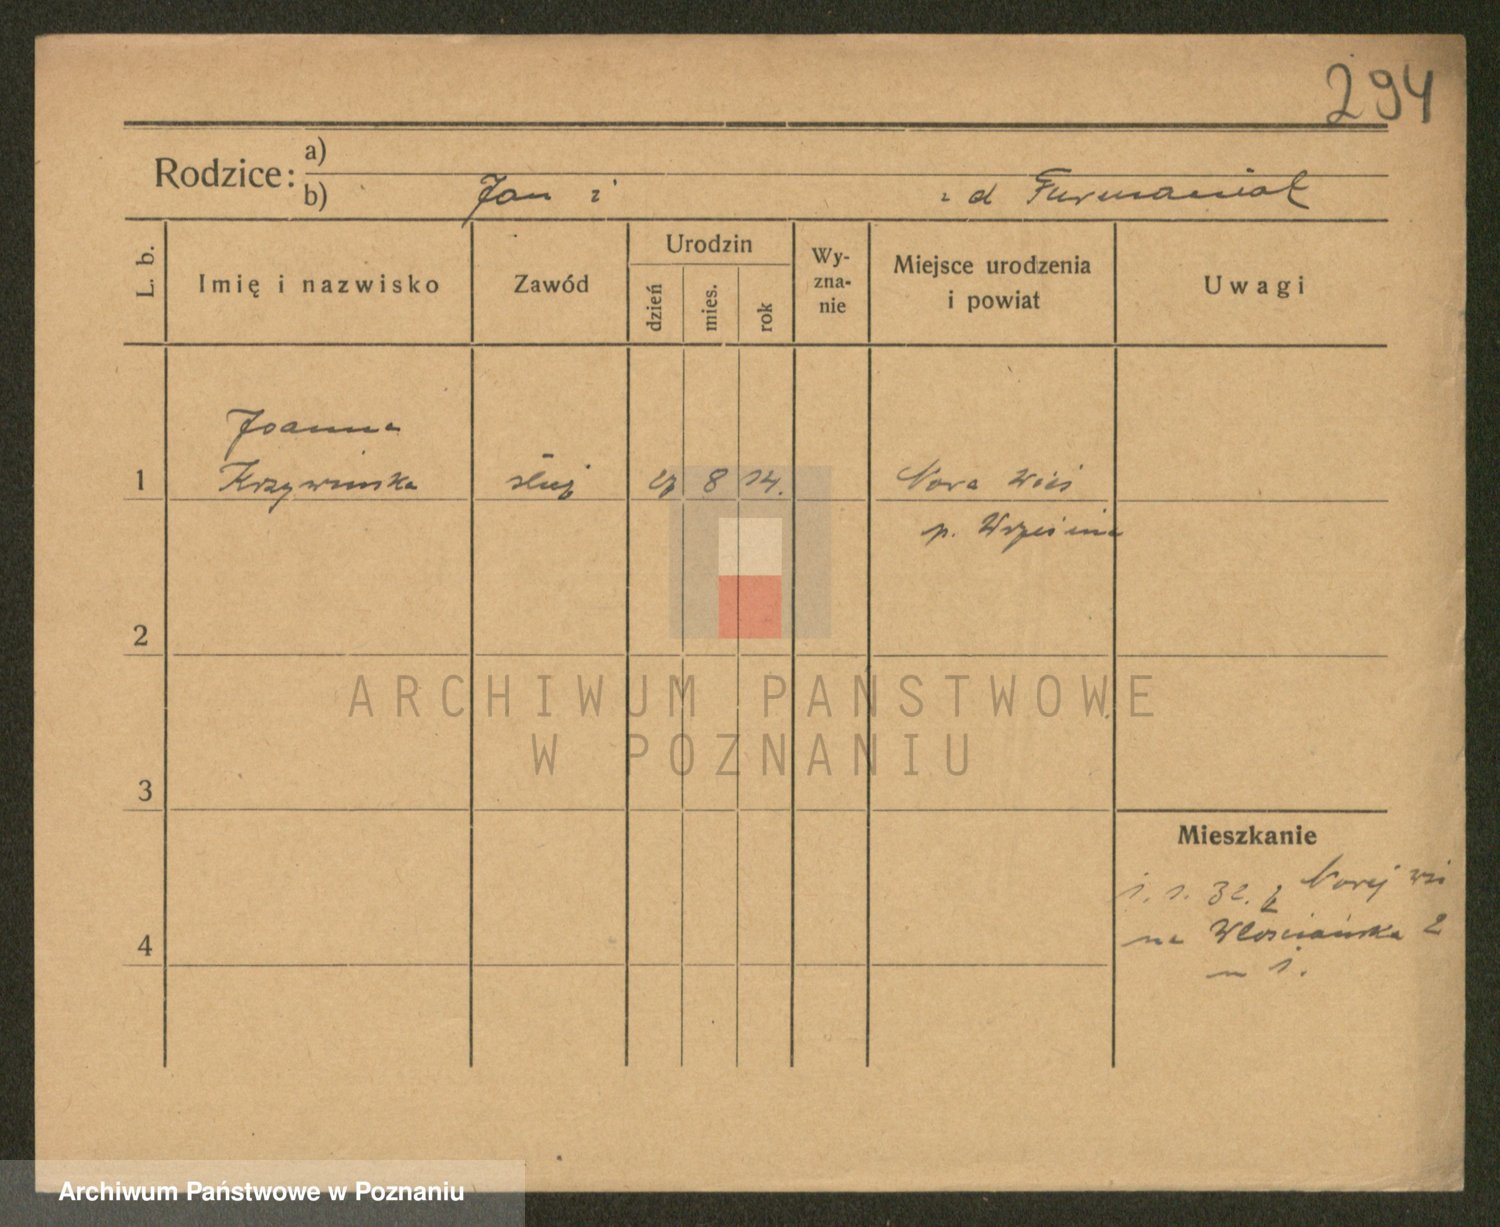 294
Rodzice: a)
b) Jan i z d Furmaniak
L. b.
Imię i nazwisko
Zawód
Urodzin
dzień
mies.
rok
Wy-
zna-
nie
Miejsce urodzenia
i powiat
Uwagi
Joanna
1 Krzywińska służ 8 14. Nowa Wieś
p. Września
2
ARCHIWUM PAŃSTWOWE
W POZNANIU
3
Mieszkanie
1. 1. 32. z Nowej wsi
4 na Włościańska 2
m 1.
Archiwum Państwowe w Poznaniu